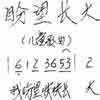 盼望长大
(儿童歌曲)
| 6 1 2 3653 | 2
我盼望快快长大